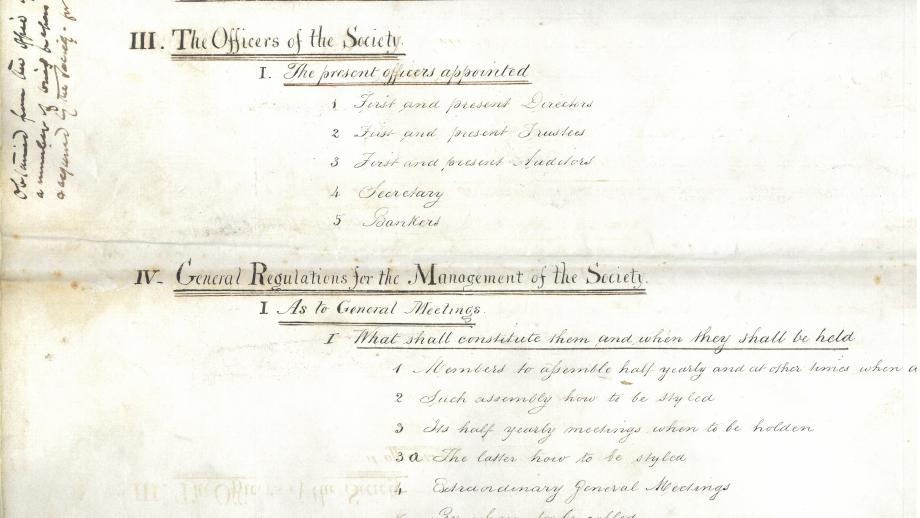 III. The Officers of the Society.
I. The present officers appointed
1 First and present Directors
2 First and present Trustees
3 First and present Auditors
4 Secretary
5 Bankers
IV- General Regulations for the Management of the Society.
I As to General Meetings.
I What shall constitute them and when they shall be held
1 Members to assemble half yearly and at other times when
2 Such assembly how to be styled
3 Its half yearly meetings when to be holden
3a The latter how to be styled
4 Extraordinary General Meetings
By whom to be called
obtained from the office
a number of
required by the